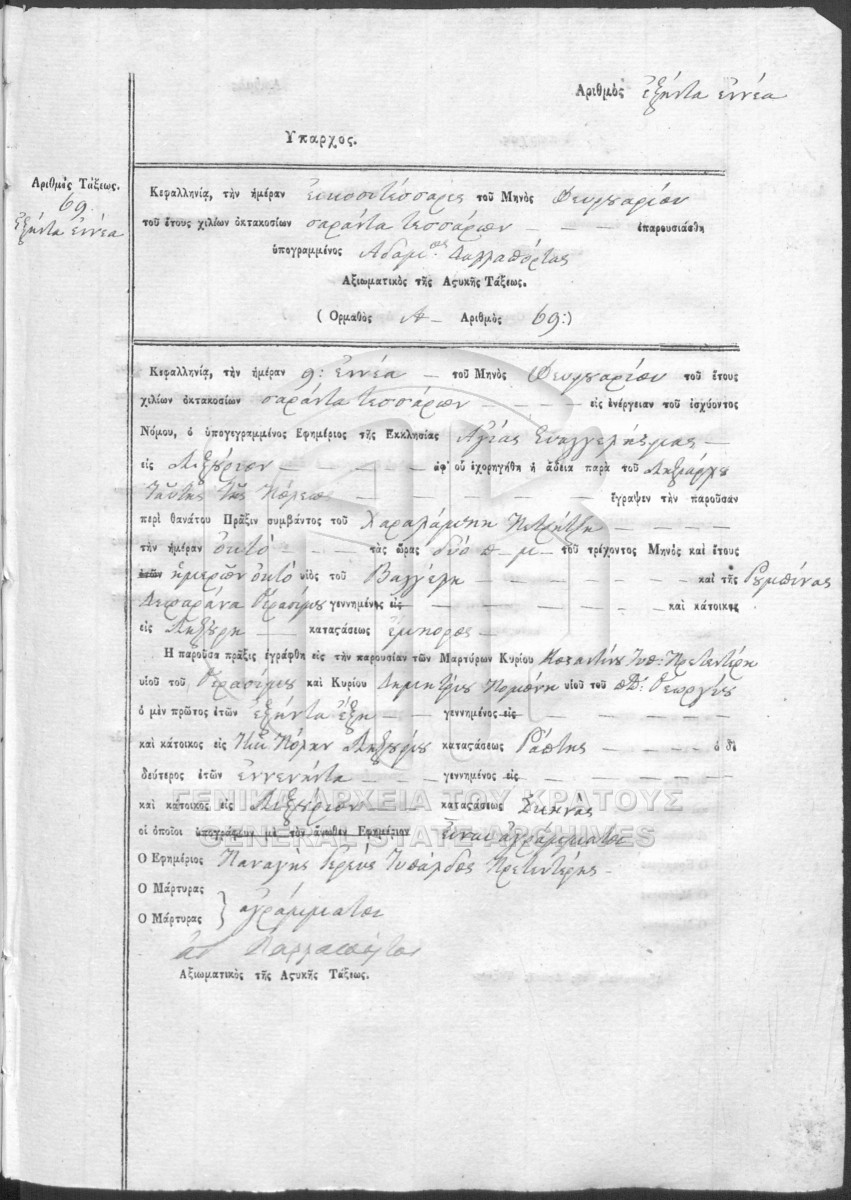 Αριθμὸς ἑξήντα ἐννέα
Υπαρχος.
Αριθμὸς Τάξεως.
69.
ἑξήντα ἐννέα
Κεφαλληνίᾳ, τὴν ἡμέραν εἰκοσιτέσσαρις τοῦ Μηνὸς Φευρουαρίου
τοῦ ἔτους χιλίων ὀκτακοσίων σαράντα τεσσάρων – – – ἐπαρουσιάσθη
ὑπογραμμένος Αδαμ.ος Καλλαπόρτας
Αξιωματικὸς τῆς Αςυκῆς Τάξεως.
( Ορμαθὸς Α – Αριθμὸς 69:)
Κεφαλληνίᾳ, τὴν ἡμέραν 9: ἐννέα – τοῦ Μηνὸς Φευρουαρίου τοῦ ἔτους
χιλίων ὀκτακοσίων σαράντα τεσσάρων – – – – εἰς ἐνέργειαν τοῦ ἰσχύοντος
Νόμου, ὁ ὑπογεγραμμένος Εφημέριος τῆς Εκκλησίας Αγίας Ευαγγελήςριας –
εἰς Ληξούριον – – – – – ἀφ' οὗ ἐχορηγήθη ἡ ἄδεια παρὰ τοῦ
Ταύτης τῆς Πόλεως – – – – – – – ἔγραψεν τὴν παροῦσαν
περὶ θανάτου Πρᾶξιν συμβάντος τοῦ Χαραλάμπη – – – –
τὴν ἡμέραν ὀκτό – – – τὰς ὥρας δύο π – μ – τοῦ τρέχοντος Μηνὸς καὶ ἔτους
ἐτῶν ἡμερῶν ὀκτό υἱὸς τοῦ Βαγγέλη – – – – – καὶ τῆς
Γερασίμου γεννημένος εἰς – – – – – – καὶ κάτοικος
εἰς Ληξούρη – – καταςάσεως ἔμπορος –
Η παροῦσα πρᾶξις ἐγράφθη εἰς τὴν παρουσίαν τῶν Μαρτύρων Κυρίου Κοςαντίνου Τυπ: Πρετεντέρη
υἱοῦ τοῦ Γερασίμου καὶ Κυρίου Δημητρίου υἱοῦ τοῦ Γεωργίου
ὁ μὲν πρῶτος ἐτῶν ἑξήντα ἕξη – – – γεννημένος εἰς – – – – – –
καὶ κάτοικος εἰς Πόλην Ληξουρίου καταςάσεως Ράπτης – – – – ὁ δὲ
δεύτερος ἐτῶν ἐννενήντα – – – – γεννημένος εἰς – – – – – –
καὶ κάτοικος εἰς Ληξούριον – – – καταςάσεως
οἱ ὁποῖοι ὑπογράφουν μὲ τὸν ἄνωθεν Εφημέριον εἶναι ἀγράμματοι
Ο Εφημέριος Παναγῆς Ιερεύς Τυπάλδος Πρετεντέρης –
Ο Μάρτυρας
Ο Μάρτυρας } ἀγράμματοι
Αδ Καλλαπόρτας
Αξιωματικὸς τῆς Αςυκῆς Τάξεως.
ΓΕΝΙΚΑ ΑΡΧΕΙΑ ΤΟΥ ΚΡΑΤΟΥΣ
GENERAL STATE ARCHIVES